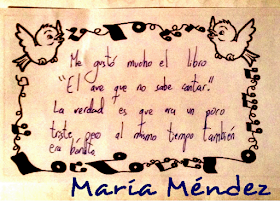 Me gustó mucho el libro
"El ave que no sabe cantar."
La verdad es que era un poco
triste, pero al mismo tiempo también
era bonito
María Méndez